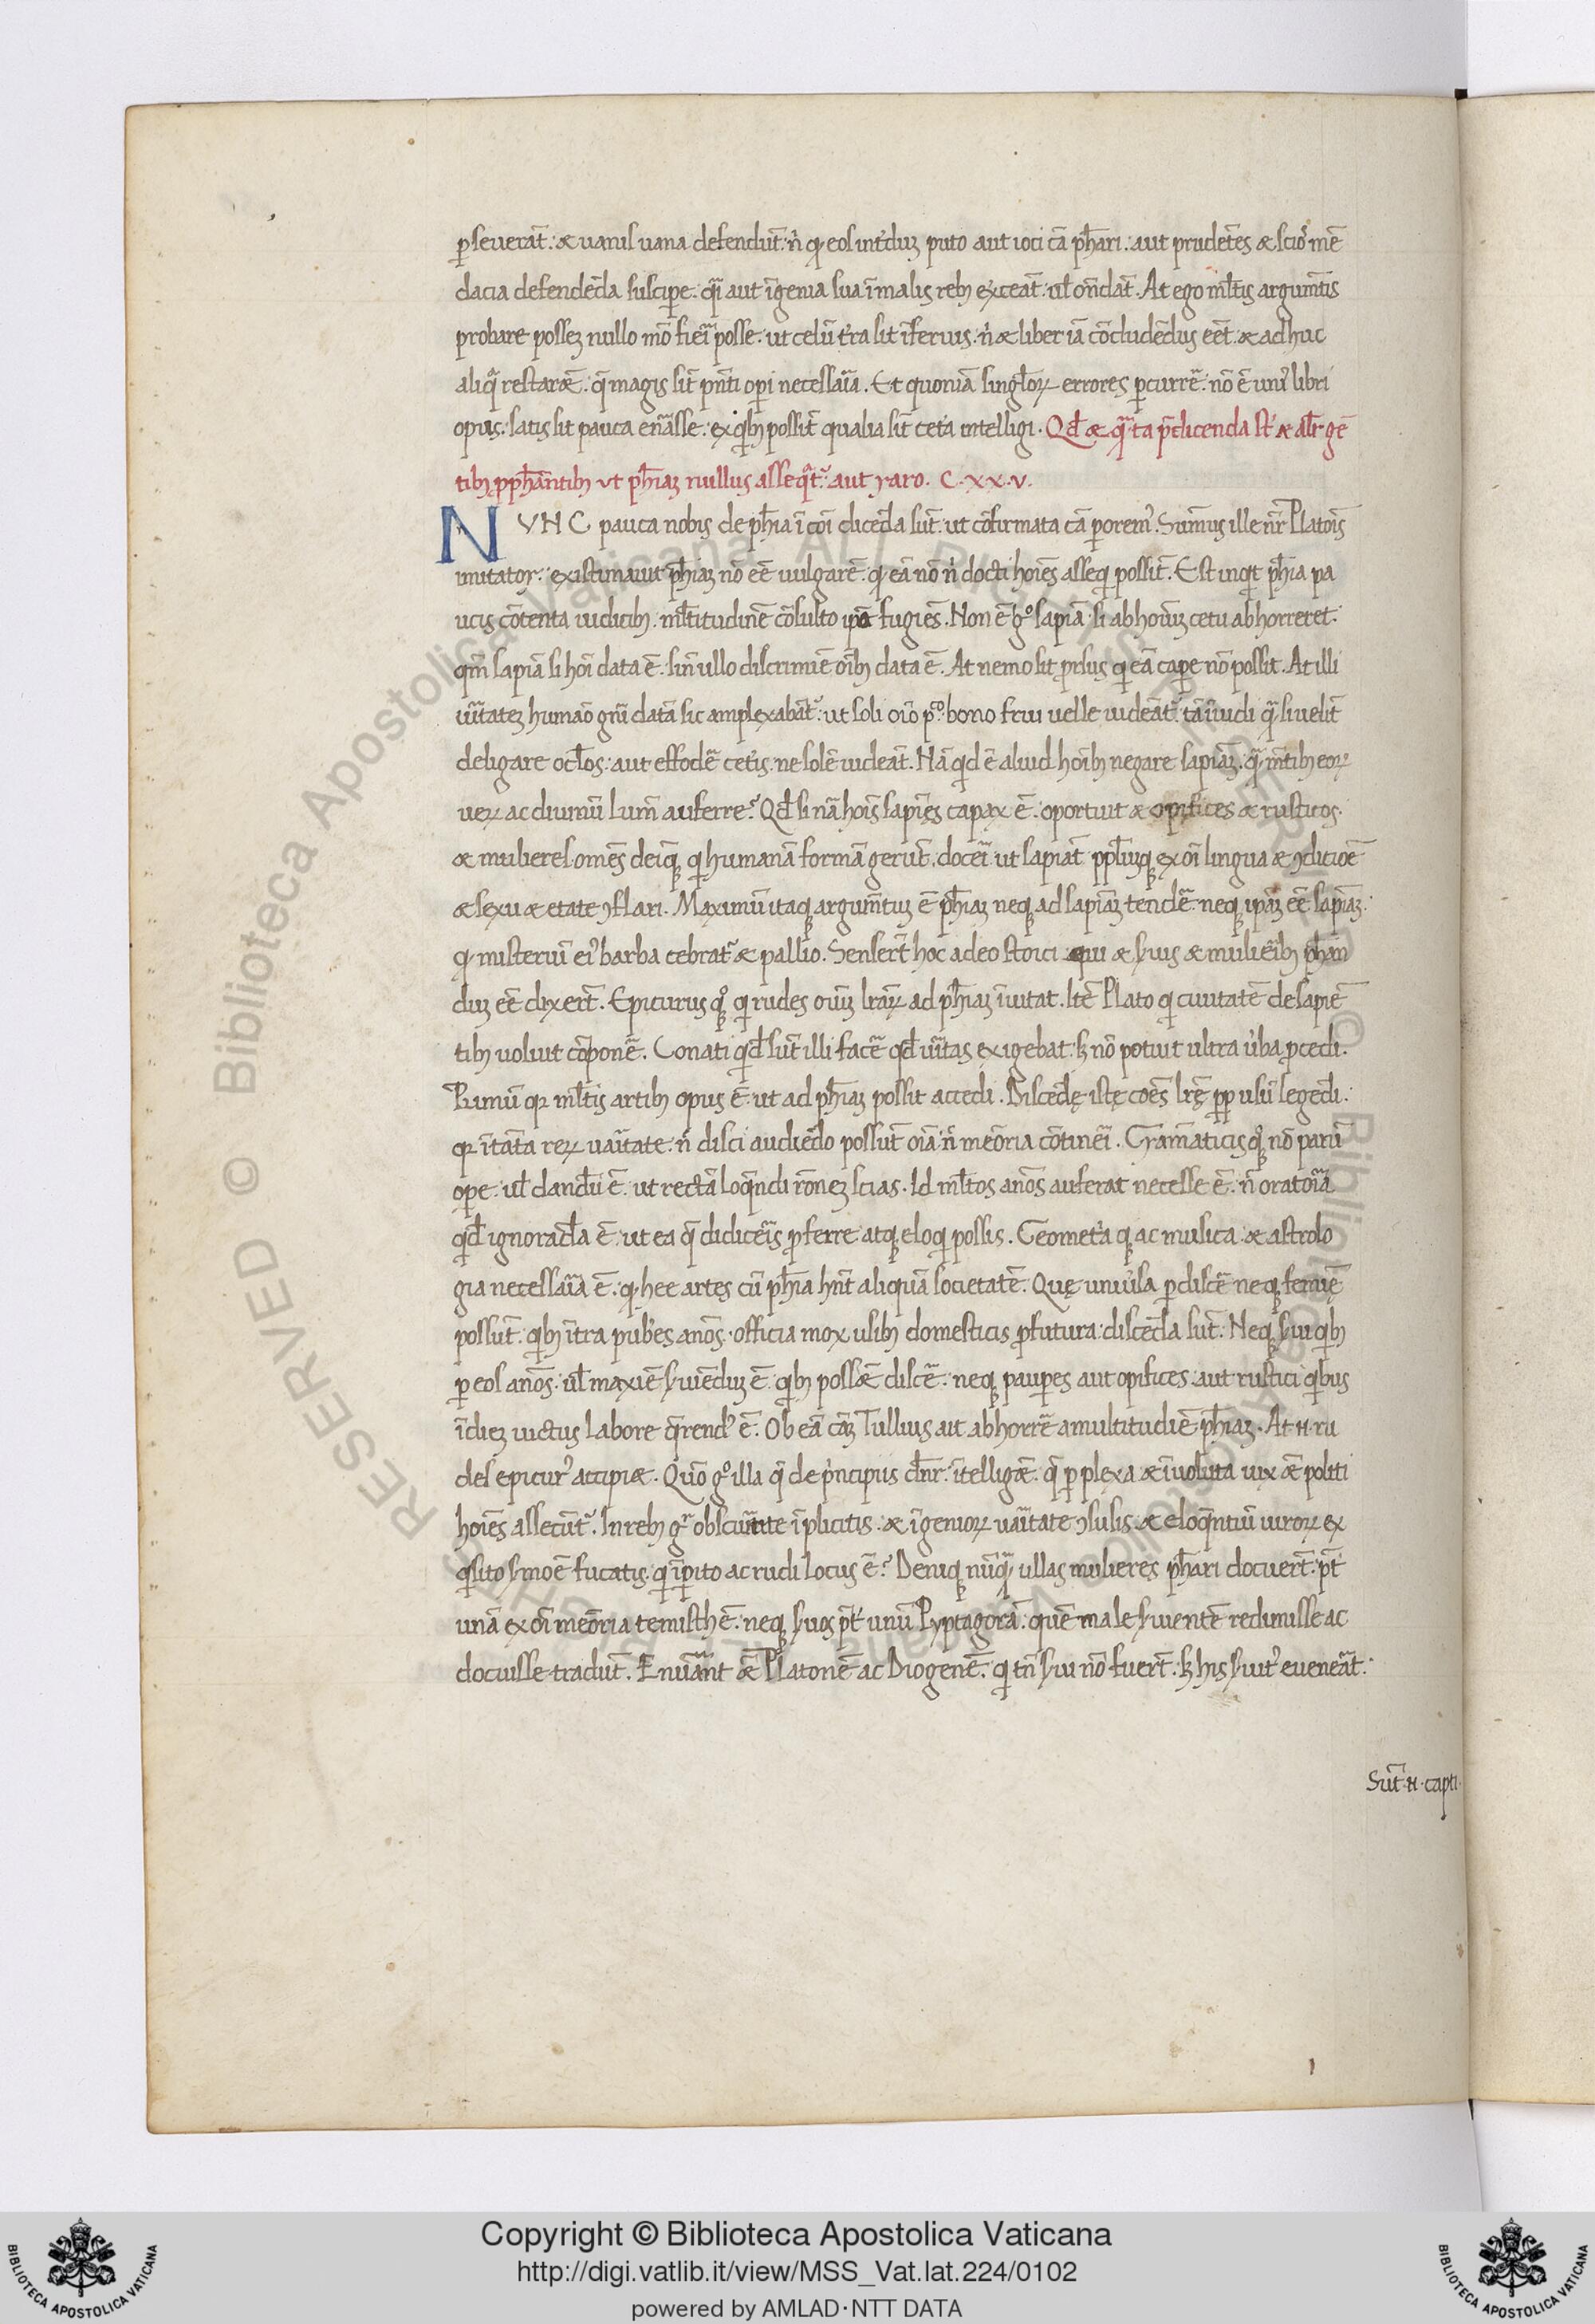 ꝑseuerāt. ⁊ vanis uana defendūt. n̄ ꝙ eos int̓duꝫ puto aut ioci cā ph̄ari. aut prudētes ⁊ scios̓ mē
dacia defendēda suscipe. qͥ aut īgenia sua ī malis rebꝫ ex̓ceāt. ul̄ on̄dāt. At ego ml̄tis argum̄tis
probare posseꝫ nullo mō fieī posse. ut celū t̓ra sit īferius. n̄ ⁊ liber iā cōcludēdus eēt. ⁊ adhuc
aliqͣ restarǣ. q̄ magis sīt pn̄ti opi necessaīa. Et quoniā singl̄oꝝ errores ꝑcurrē. nō ē uniꝰ libri
opus. satis sit pauca enāsse. ex qͥbꝫ possīt qualia sīt cet̓a intelligi. Qd̄ ⁊ qͣ ta p̄dicenda st̄ ⁊ ab̄ gē
tibꝫ ꝓph̄antibꝫ ut ph̄iaꝫ nullus asseqͣt̓. aut raro. C.XXV.
NVNC pauca nobis de ph̄ia ī coī dicēda sūt. ut cōfirmata cā ꝑoremꝰ. Sūmus ille nr̄ Platoīs
imitator. existimauit ph̄iaꝫ nō eē uulgarē. ꝙ eā nō n̄ docti hoīes asseqͥ possīt. Est inqͥt ph̄ia pa
ucis cōtenta iudicibꝫ. ml̄titudinē cōsulto ip̄a fugiēs. Non ē gͦ sapiā si ab hoīuꝫ cetu abhorreret.
qm̄ sapiā si hoī data ē. sin̄ ullo discrimīe oībꝫ data ē. At nemo sit prͦsus qͥ eā cape nō possit. At illi
uīltateꝫ humāo gn̄i datā sic amplexabāt̓. ut soli oīo pͦ bono frui uelle uideāt̓. tā īuidi qͣ si uelīt
deligare ocl̄os. aut effodē cet̓is. ne solē uideāt. Nā qͥd ē aliud hoībꝫ negare sapiāꝫ. qͣ mētibꝫ eoꝝ
ueꝝ ac diuinū lum̄ auferre? Qd̄ si nā hoīs sapiēs capax ē. oportuit ⁊ opifices ⁊ rusticos.
⁊ mulieres. omēs deiqꝫ qͥ humanā formā gerūt. doceī ut sapiāt ppl̄uqꝫ ex oī lingua ⁊ ꝯditiōe
⁊ sexu ⁊ etate ꝯflari. Maximū itaqꝫ argum̄tuꝫ ē ph̄iaꝫ neqꝫ ad sapiāꝫ tendē. neqꝫ ip̄aꝫ eē sapiāꝫ.
ꝙ misteriū eiꝰ barba cebrat̓ ⁊ pallio. Senser̄t hoc adeo stoici qui ⁊ s̓uis ⁊ mulieībꝫ ph̄an
duꝫ eē dixer̄t. Epicurus qͦꝫ qͥ rudes oīuꝫ lr̄aꝝ ad ph̄iaꝫ īuitat. Itē Plato qͥ ciuitatē de sapiē
tibꝫ uoluit cōponē. Conati qͥd̄ sūt illi facē qd̄ uīltas exigebat. sꝫ nō potuit ultra u̓ba ꝓcedi.
Primū qꝛ ml̄tis artibꝫ opus ē. ut ad ph̄iaꝫ possit accedi. Discēdę istę coēs lr̄ę ꝓp̄ usū legēdi.
qꝛ ī tāta reꝝ uaīetate. n̄ disci audiēdo possūt oīa n̄ meōria cōtineī. Gram̄aticis qͦꝫ nō parū
ope. ul̄ dandū ē. ut rectā loqn̄di rōneꝫ scias. Id ml̄tos anōs auferat necesse ē. n̄ oratoīa
qd̄ ignorāda ē. ut ea q̄ didiceīs ꝓferre atqꝫ eloqͥ possis. Geomet̓a qꝫ ac musica. ⁊ astrolo
gia necessaīa ē. ꝙ hee artes cū ph̄ia hn̄t aliquā societatē. Quę uniu̓sa ꝑdiscē neqꝫ femię
possūt. qͥbꝫ ītra pub̓es anōs. officia mox usibꝫ domesticis ꝓfutura discēda sūt. Neqꝫ s̓ui qͥbꝫ
ꝑ eos anōs. ul̄ maxīe s̓uiēduꝫ ē. qͥbꝫ possǣ discē. neqꝫ pauꝑes aut opifices. aut rustici qͥbus
ī dieꝫ uictus labore q̄rendꝰ ē. Ob eā cāꝫ Tullius ait abhorrē a multitudīe ph̄iaꝫ. At .n. ru
des epicurꝰ accipiæ. Quō gͦ illa q̄ de pͥncipiis dn̄r. ītelligǣ. q̄ ꝑplexa ⁊ īuoluta uix ǣ politi
hoīes assecūt̓. In rebꝫ gͦ obscuītate īplicitis. ⁊ īgenioꝝ uaīetate ꝯfusis. ⁊ eloqn̄tiū uiroꝝ ex
qͥsito s̓moē fucatis. qͥ īꝑito ac rudi locus ē? Deniqꝫ nūqͣ ullas mulieres ph̄ari docuer̄t. p̄t
unā ex oī meōria temisthē. neqꝫ s̓uos p̄t unū Pyptagorā. quē male s̓uientē redimisse ac
docuisse tradūt. Enum̄ānt ǣ Platonē ac Diogenē. qͥ tn̄ s̓ui nō fuer̄t. sꝫ his s̓uitꝰ eueneāt.
Sūt .n. capti
RESERVED © Biblioteca Apostolica Vaticana
Copyright © Biblioteca Apostolica Vaticana
http://digi.vatlib.it/view/MSS_Vat.lat.224/0102
powered by AMLAD·NTT DATA
BIBLIOTECA APOSTOLICA VATICANA
BIBLIOTECA APOSTOLICA VATICANA